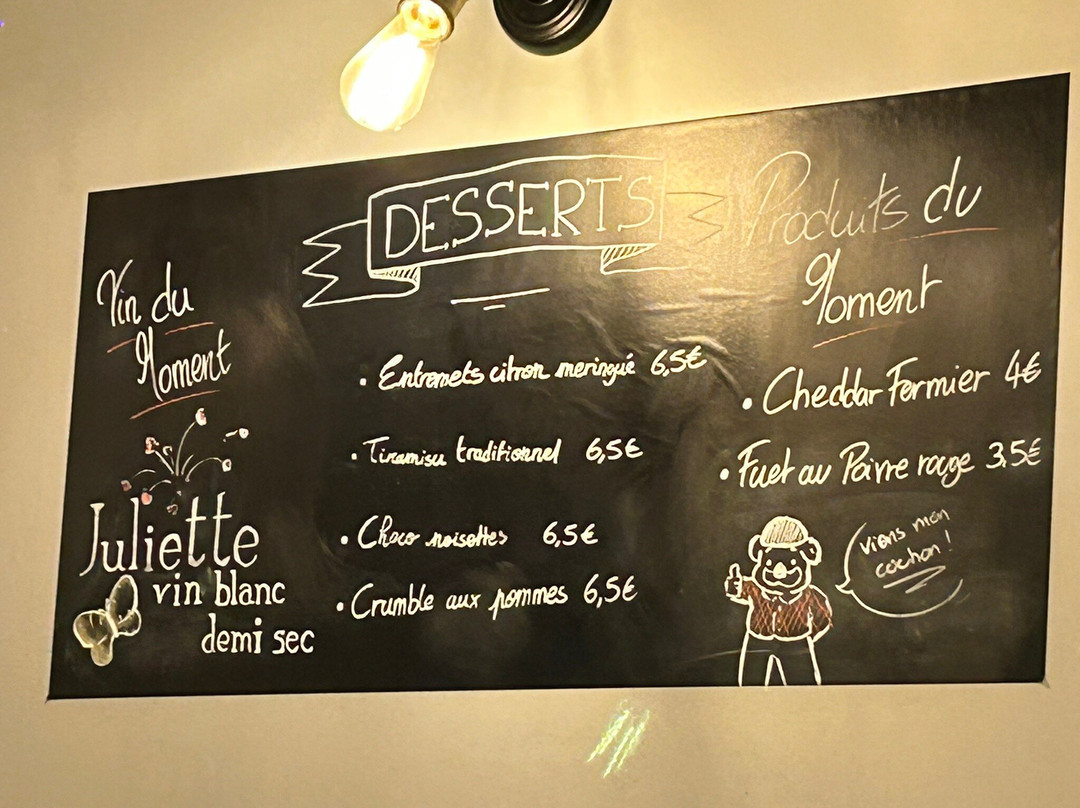 Vin du
Moment
Juliette
vin blanc
demi sec
DESSERTS
• Entremets citron meringué 6,5€
• Tiramisu traditionnel 6,5€
• Choco noisettes 6,5€
• Crumble aux pommes 6,5€
Produits du
Moment
• Cheddar Fermier 4€
• Fuet au Poivre rouge 3,5€
viens mon
cochon !